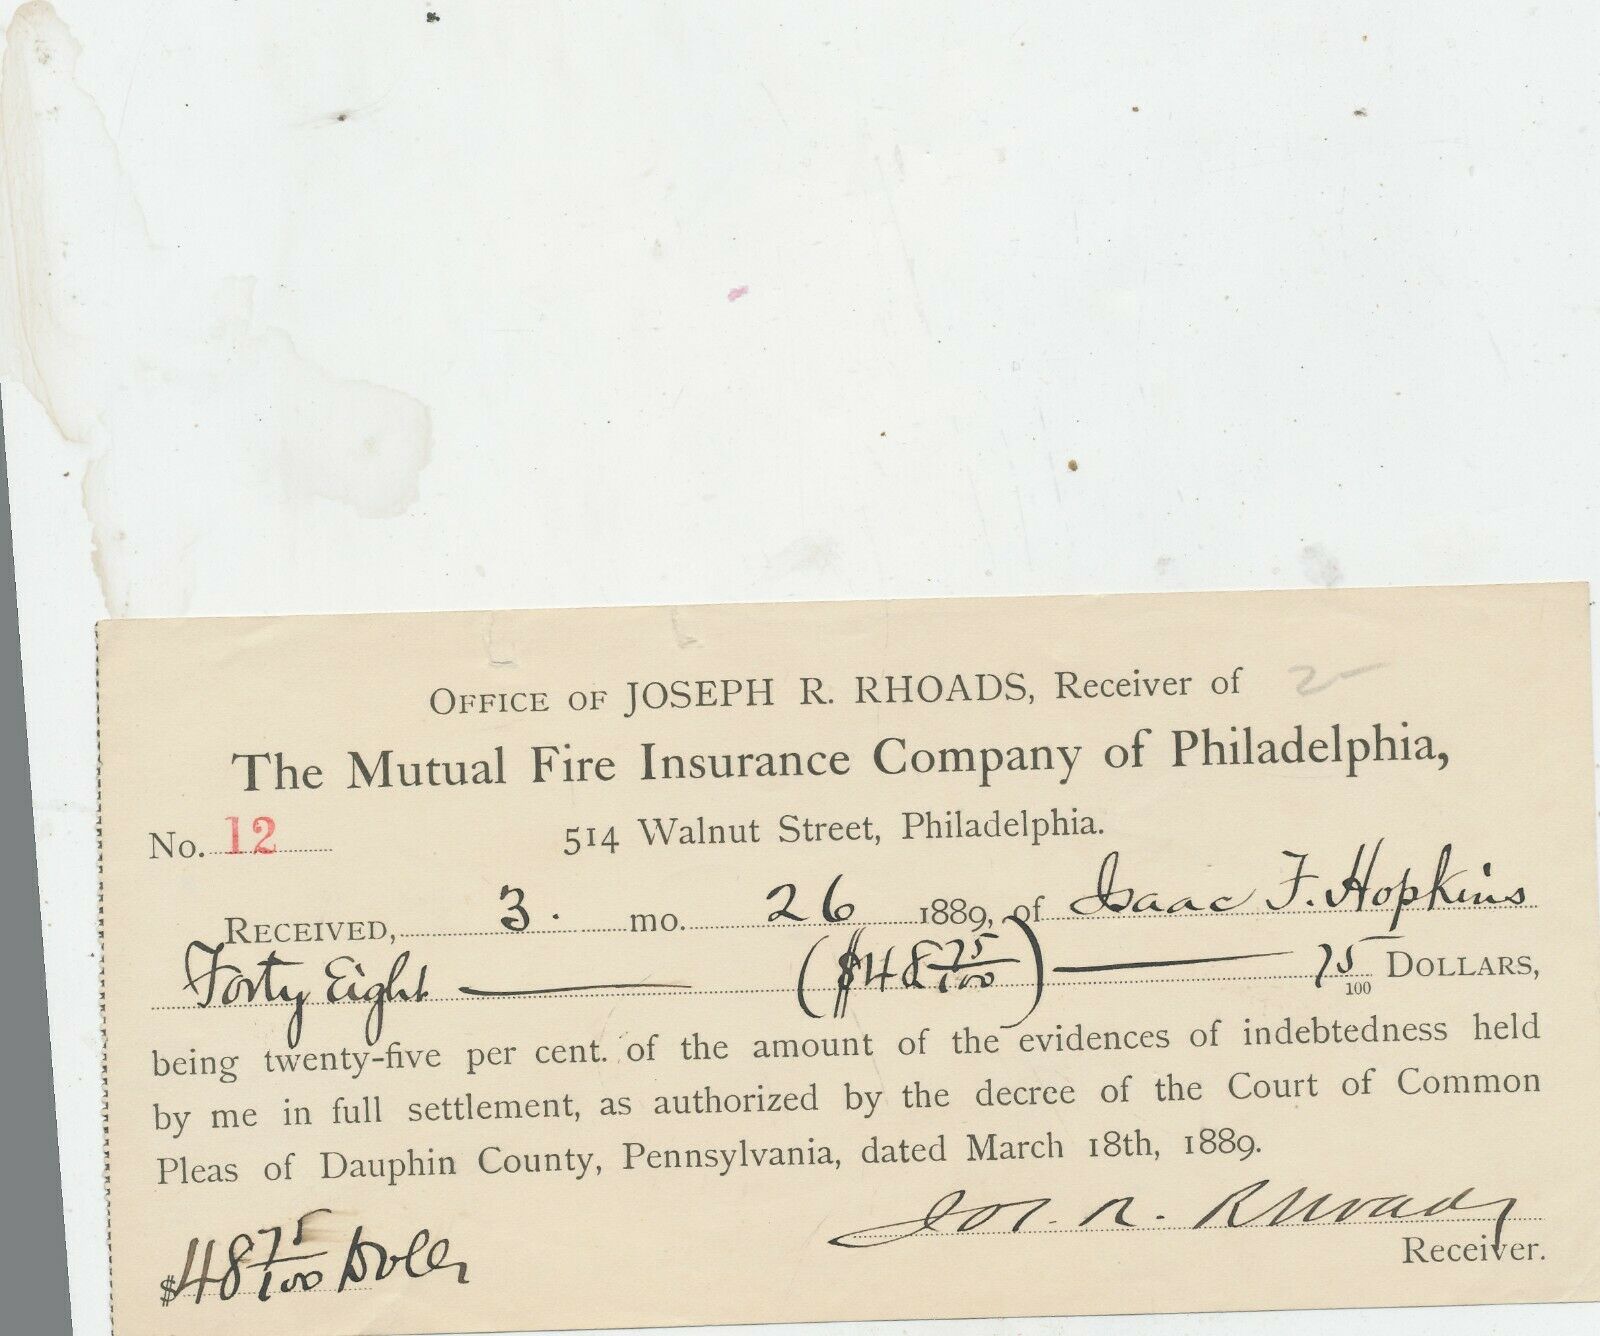 OFFICE OF JOSEPH R. RHOADS, Receiver of 2
The Mutual Fire Insurance Company of Philadelphia,
No. 12 514 Walnut Street, Philadelphia.
RECEIVED, 3. mo. 26 1889, of Isaac F. Hopkins
Forty Eight ($48 75/100) 75/100 DOLLARS,
being twenty-five per cent. of the amount of the evidences of indebtedness held
by me in full settlement, as authorized by the decree of the Court of Common
Pleas of Dauphin County, Pennsylvania, dated March 18th, 1889.
Jos. R. Rhoads
Receiver.
$48 75/100 Dolls